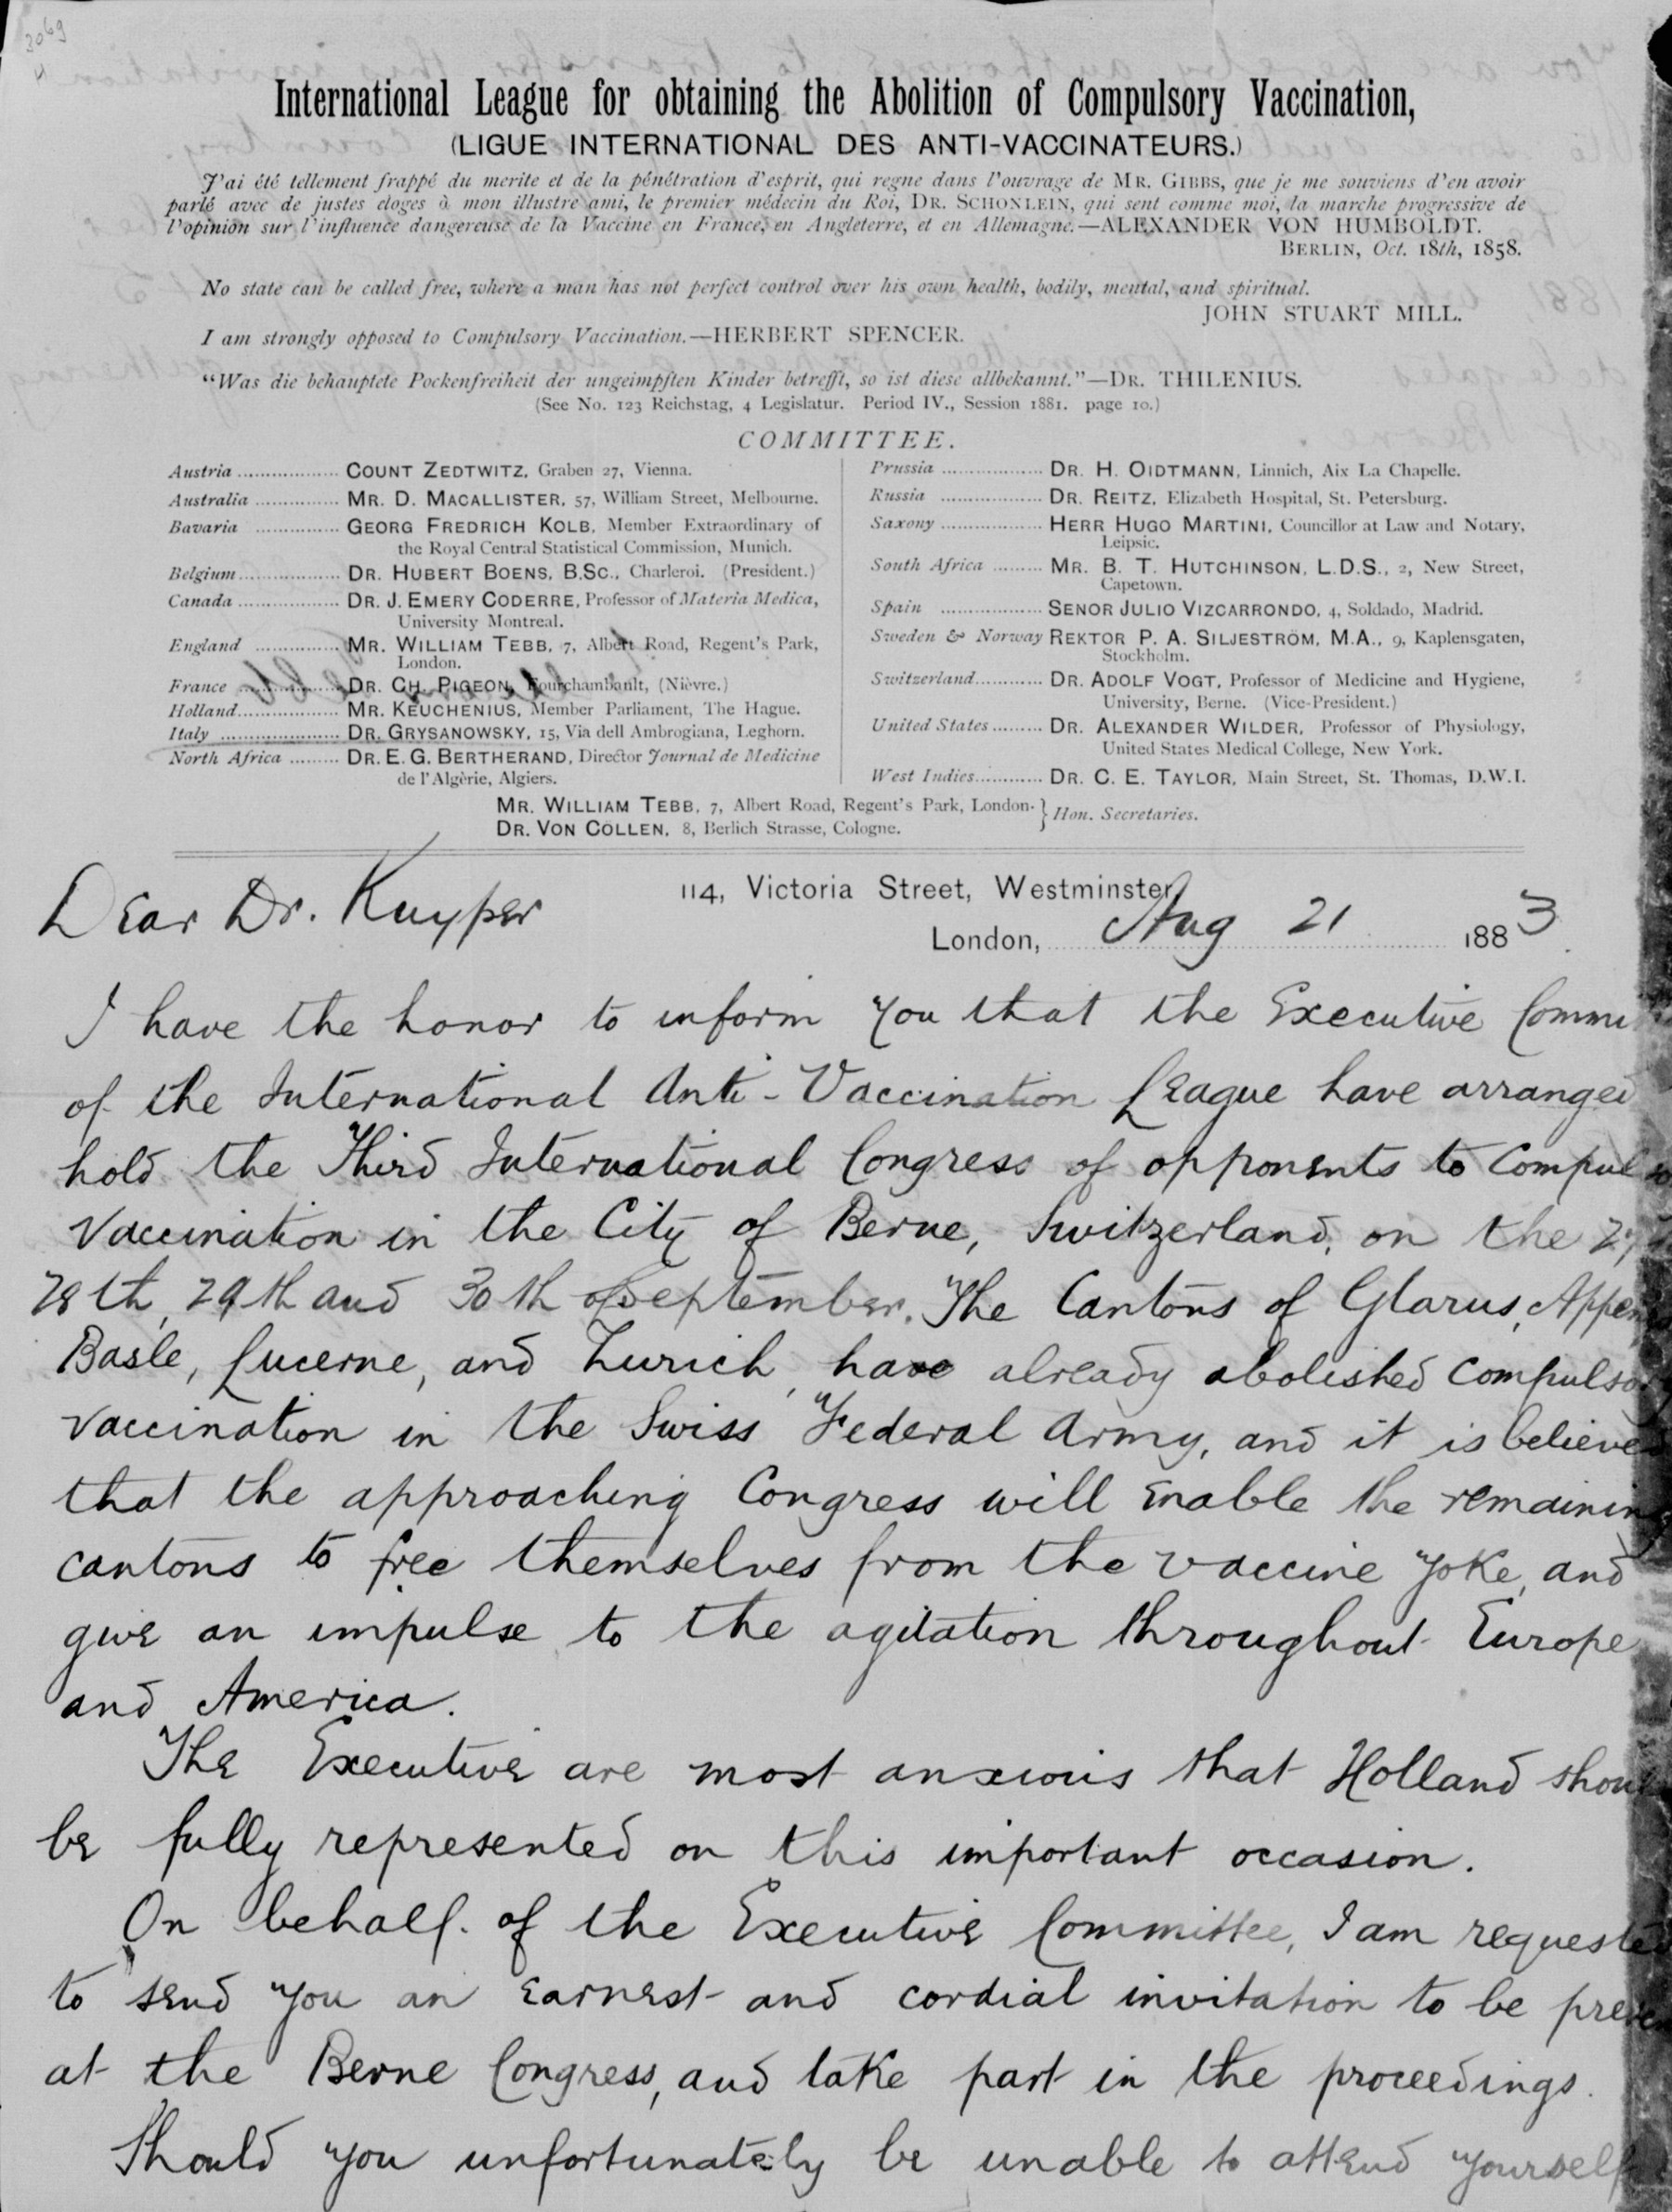 3069
International League for obtaining the Abolition of Compulsory Vaccination,
(LIGUE INTERNATIONAL DES ANTI-VACCINATEURS.)
J'ai été tellement frappé du merite et de la pénétration d'esprit, qui regne dans l'ouvrage de MR. GIBBS, que je me souviens d'en avoir
parlé avec de justes eloges à mon illustre ami, le premier médecin du Roi, DR. SCHONLEIN, qui sent comme moi, la marche progressive de
l'opinion sur l'influence dangereuse de la Vaccine en France, en Angleterre, et en Allemagne.—ALEXANDER VON HUMBOLDT.
BERLIN, Oct. 18th, 1858.
No state can be called free, where a man has not perfect control over his own health, bodily, mental, and spiritual.
JOHN STUART MILL.
I am strongly opposed to Compulsory Vaccination.—HERBERT SPENCER.
"Was die behauptete Pockenfreiheit der ungeimpften Kinder betrefft, so ist diese allbekannt."—DR. THILENIUS.
(See No. 123 Reichstag, 4 Legislatur. Period IV., Session 1881. page 10.)
COMMITTEE.
Austria .................. COUNT ZEDTWITZ, Graben 27, Vienna.
Australia ............... MR. D. MACALLISTER, 57, William Street, Melbourne.
Bavaria ............... GEORG FREDRICH KOLB, Member Extraordinary of
the Royal Central Statistical Commission, Munich.
Belgium.................. DR. HUBERT BOENS, B.SC., Charleroi. (President.)
Canada .................. DR. J. EMERY CODERRE, Professor of Materia Medica,
University Montreal.
England ............... MR. WILLIAM TEBB, 7, Albert Road, Regent's Park,
London.
France .................. DR. CH. PIGEON, Fourchambault, (Nièvre.)
Holland.................. MR. KEUCHENIUS, Member Parliament, The Hague.
Italy ..................... DR. GRYSANOWSKY, 15, Via dell Ambrogiana, Leghorn.
North Africa ......... DR. E. G. BERTHERAND, Director Journal de Medicine
de l'Algèrie, Algiers.
Prussia .................. DR. H. OIDTMANN, Linnich, Aix La Chapelle.
Russia .................. DR. REITZ, Elizabeth Hospital, St. Petersburg.
Saxony .................. HERR HUGO MARTINI, Councillor at Law and Notary,
Leipsic.
South Africa ......... MR. B. T. HUTCHINSON, L.D.S., 2, New Street,
Capetown.
Spain .................. SENOR JULIO VIZCARRONDO, 4, Soldado, Madrid.
Sweden & Norway REKTOR P. A. SILJESTRÖM, M.A., 9, Kaplensgaten,
Stockholm.
Switzerland............ DR. ADOLF VOGT, Professor of Medicine and Hygiene,
University, Berne. (Vice-President.)
United States ......... DR. ALEXANDER WILDER, Professor of Physiology,
United States Medical College, New York.
West Indies............ DR. C. E. TAYLOR, Main Street, St. Thomas, D.W.I.
MR. WILLIAM TEBB, 7, Albert Road, Regent's Park, London. } Hon. Secretaries.
DR. VON CÖLLEN, 8, Berlich Strasse, Cologne.
114, Victoria Street, Westminster,
Dear Dr. Kuyper
London, Aug 21 1883.
I have the honor to inform you that the Executive Commi
of the International Anti-Vaccination League have arranged
hold the Third International Congress of opponents to Compulso
Vaccination in the City of Berne, Switzerland, on the 27
28th, 29th and 30th of September. The Cantons of Glarus, Appen
Basle, Lucerne, and Zurich, have already abolished compulsory
vaccination in the Swiss Federal Army, and it is believed
that the approaching Congress will enable the remaining
cantons to free themselves from the vaccine yoke, and
give an impulse to the agitation throughout Europe
and America.
The Executive are most anxious that Holland shoul
be fully represented on this important occasion.
On behalf of the Executive Committee, I am requested
to send you an earnest and cordial invitation to be presen
at the Berne Congress, and take part in the proceedings.
Should you unfortunately be unable to attend yourself